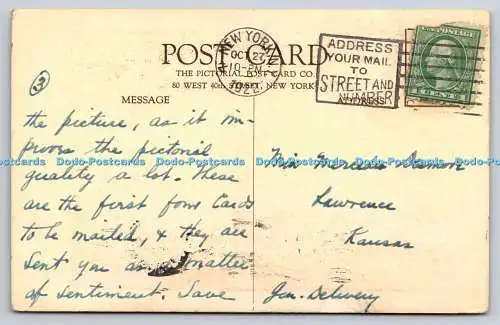 POST CARD
THE PICTORIAL POST CARD CO.
80 WEST 40th STREET, NEW YORK
MESSAGE
ADDRESS
NEW YORK, N.Y.
OCT 27
ADDRESS
YOUR MAIL
TO
STREET AND
NUMBER
U.S. POSTAGE
CENT
3
the picture, as it im-
proves the pictorial
quality a lot. These
are the first four Cards
to be mailed, & they are
sent you as a matter
of sentiment. Save
Miss
Lawrence
Kansas
Gen. Delivery
Dodo-Postcards Dodo-Postcards Dodo-Postcards Dodo-Postcards Dodo-Postcards